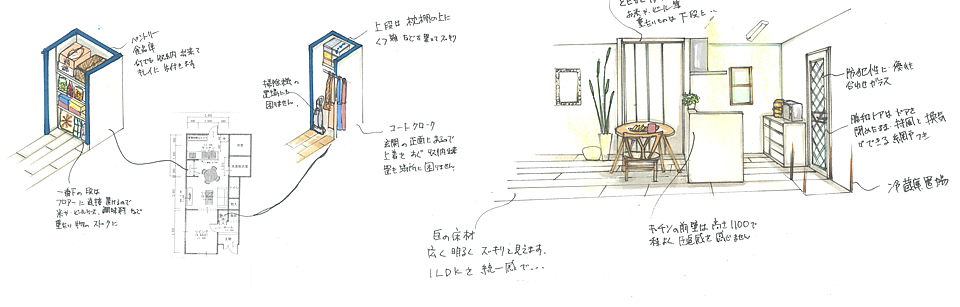 パントリー
食品庫
何でも収納出来て
キレイに片付きます
一番下の段は
フロアーに直接置けるので
米やビールケース、調味料など
重たい物のストックに
上段は枕棚の上に
くつ箱などを置いてスッキリ
掃除機の
置場にも
困りません。
コートクローク
玄関の正面にあるので
上着をすぐ収納出来
置き場所に困りません。
お米や、ビール等
重たいものは下段に…
白の床材
広く明るくスッキリと見えます。
1LDKを統一感で…
キッチンの前壁は高さ1100で
程よく圧迫感を感じません
防犯性に優れた
合わせガラス
勝手ドアはドアを
閉めたまま、採風と換気
ができる網戸つき
冷蔵庫置場